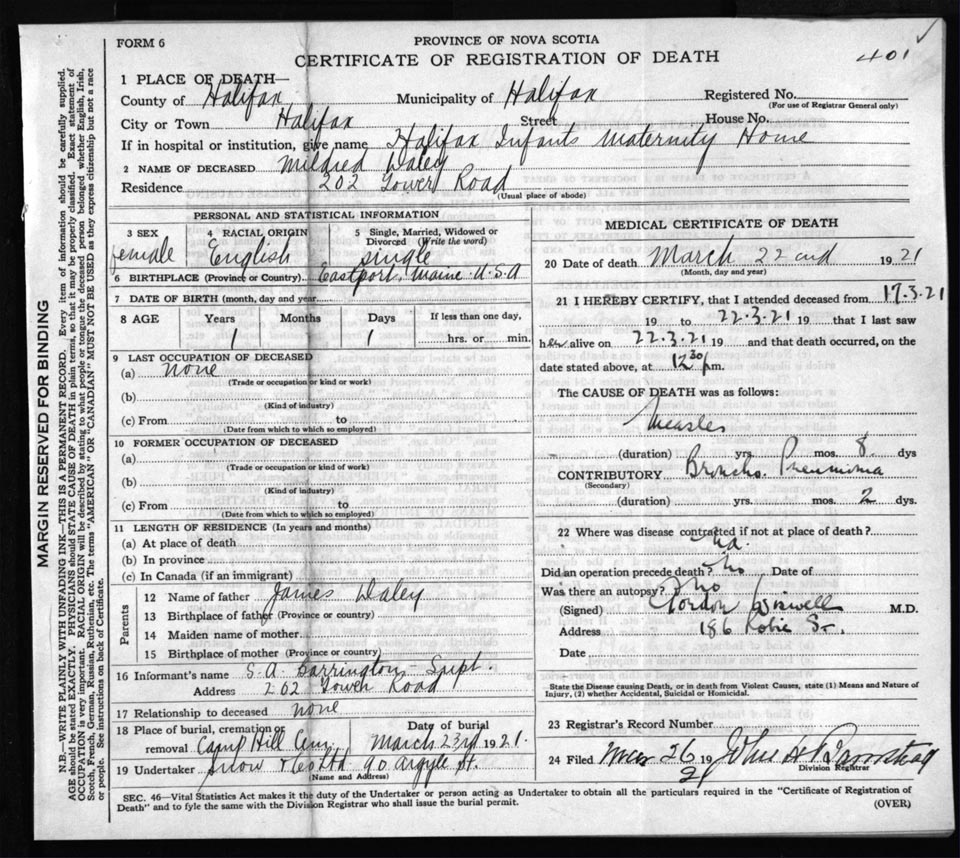 FORM 6
PROVINCE OF NOVA SCOTIA
401
CERTIFICATE OF REGISTRATION OF DEATH
1 PLACE OF DEATH—
County of Halifax Municipality of Halifax Registered No.
(For use of Registrar General only)
City or Town Halifax Street House No.
If in hospital or institution, give name Halifax Infants Maternity Home
2 NAME OF DECEASED Mildred Daley
Residence 202 Tower Road
(Usual place of abode)
PERSONAL AND STATISTICAL INFORMATION
3 SEX 4 RACIAL ORIGIN 5 Single, Married, Widowed or Divorced (Write the word)
female English single
6 BIRTHPLACE (Province or Country) Eastport, Maine U.S.A
7 DATE OF BIRTH (month, day and year)
8 AGE Years Months Days If less than one day,
1 1 hrs. or min.
9 LAST OCCUPATION OF DECEASED
(a) none
(Trade or occupation or kind or work)
(b)
(Kind of industry)
(c) From to
(Date from which to which so employed)
10 FORMER OCCUPATION OF DECEASED
(a)
(Trade or occupation or kind of work)
(b)
(Kind of industry)
(c) From to
(Date from which to which so employed)
11 LENGTH OF RESIDENCE (In years and months)
(a) At place of death
(b) In province
(c) In Canada (if an immigrant)
Parents
12 Name of father James Daley
13 Birthplace of father (Province or country)
14 Maiden name of mother
15 Birthplace of mother (Province or country)
16 Informant's name S. A. Barrington - Supt.
Address 202 Tower Road
17 Relationship to deceased none
18 Place of burial, cremation or removal Camp Hill Cem. Date of burial March 23rd 1921.
19 Undertaker Snow & Co Ltd 90 Argyle St.
(Name and Address)
MEDICAL CERTIFICATE OF DEATH
20 Date of death March 22nd 1921
(Month, day and year)
21 I HEREBY CERTIFY, that I attended deceased from 17.3.21
19 to 22.3.21 19 that I last saw
her alive on 22.3.21 19 and that death occurred, on the
date stated above, at 12 30 pm.
The CAUSE OF DEATH was as follows:
Measles
(duration) yrs. mos. 8 dys
CONTRIBUTORY Broncho. Pneumonia
(Secondary)
(duration) yrs. mos. 2 dys.
22 Where was disease contracted if not at place of death?
Did an operation precede death? no Date of
Was there an autopsy? no
(Signed) Gordon Wiswell M.D.
Address 186 Robie St.
Date
State the Disease causing Death, or in death from Violent Causes, state (1) Means and Nature of
Injury, (2) whether Accidental, Suicidal or Homicidal.
23 Registrar's Record Number
24 Filed Mar 26 1921 John H
Division Registrar
SEC. 46—Vital Statistics Act makes it the duty of the Undertaker or person acting as Undertaker to obtain all the particulars required in the "Certificate of Registration of
Death" and to fyle the same with the Division Registrar who shall issue the burial permit. (OVER)
MARGIN RESERVED FOR BINDING
N.B.—WRITE PLAINLY WITH UNFADING INK—THIS IS A PERMANENT RECORD. Every item of information should be carefully supplied.
AGE should be stated EXACTLY. PHYSICIANS should STATE CAUSE OF DEATH in plain terms, so that it may be properly classified. Exact statement of
OCCUPATION is very important. RACIAL ORIGIN will be described by stating to what people or tongue the deceased person belonged whether English, Irish,
Scotch, French, German, Russian, Ruthenian, etc. The terms "AMERICAN" OR "CANADIAN" MUST NOT BE USED as they express citizenship but not a race
or people. See instructions on back of Certificate.